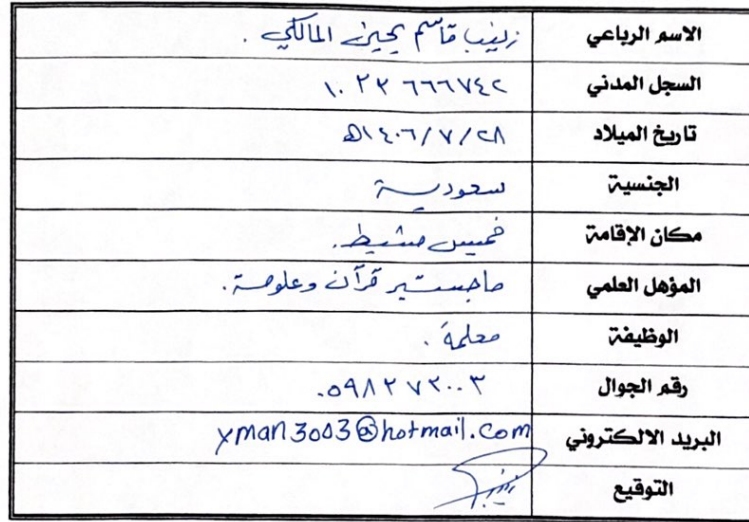 الاسم الرباعي زينب قاسم يحيى المالكي .
السجل المدني ١٠٢٣٦٦٦٧٤٢
تاريخ الميلاد ٢٨/٧/١٤٠٦هـ
الجنسية سعودية
مكان الإقامة خميس مشيط.
المؤهل العلمي ماجستير قرآن وعلومه.
الوظيفة معلمة .
رقم الجوال ٠٥٩٨٢٧٢٠٠٣
البريد الالكتروني yman3003@hotmail.com
التوقيع زينب